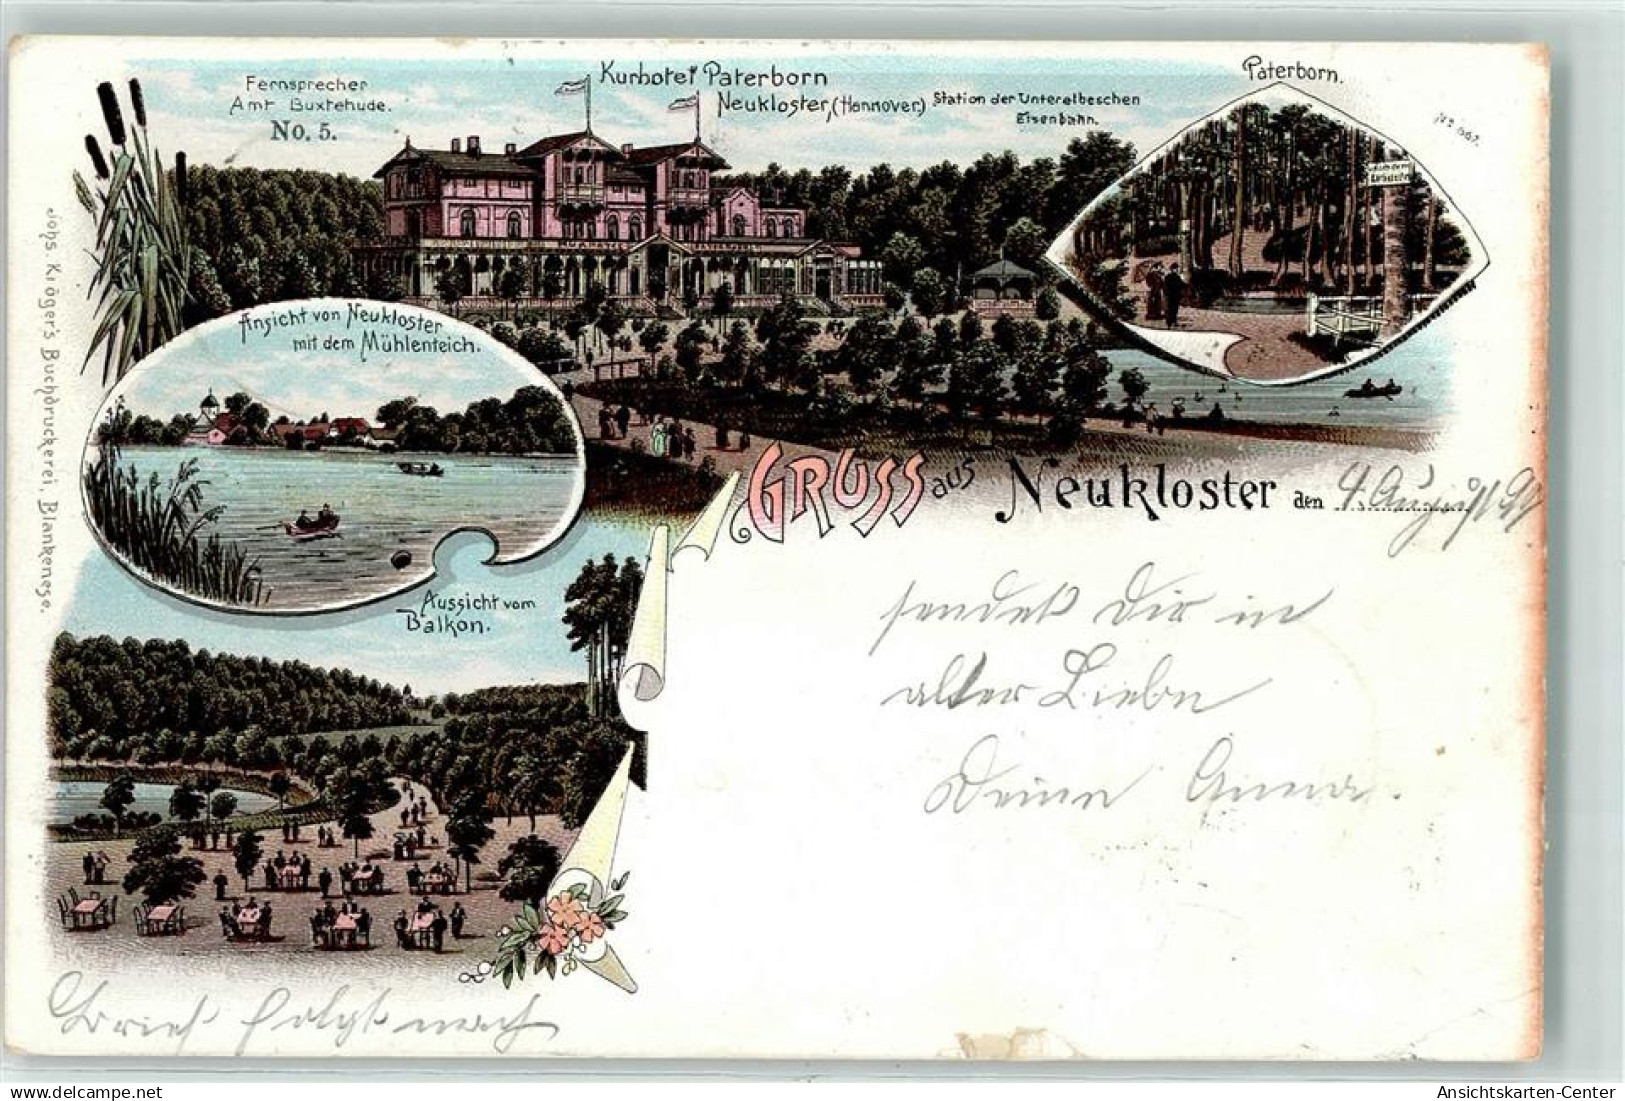 Fernsprecher
Amt Buxtehude.
No. 5.
Kurhotel Paterborn
Neukloster, (Hannover.)
Station der Unterelbeschen
Eisenbahn.
Paterborn.
Ansicht von Neukloster
mit dem Mühlenteich.
Aussicht vom
Balkon.
Johs. Kröger's Buchdruckerei, Blankenese.
GRUSS aus Neukloster den 4. August 97
sendet Dir in
alter Liebe
Deine Anna.
Brief folgt nach
Ansichtskarten-Center
www.delcampe.net